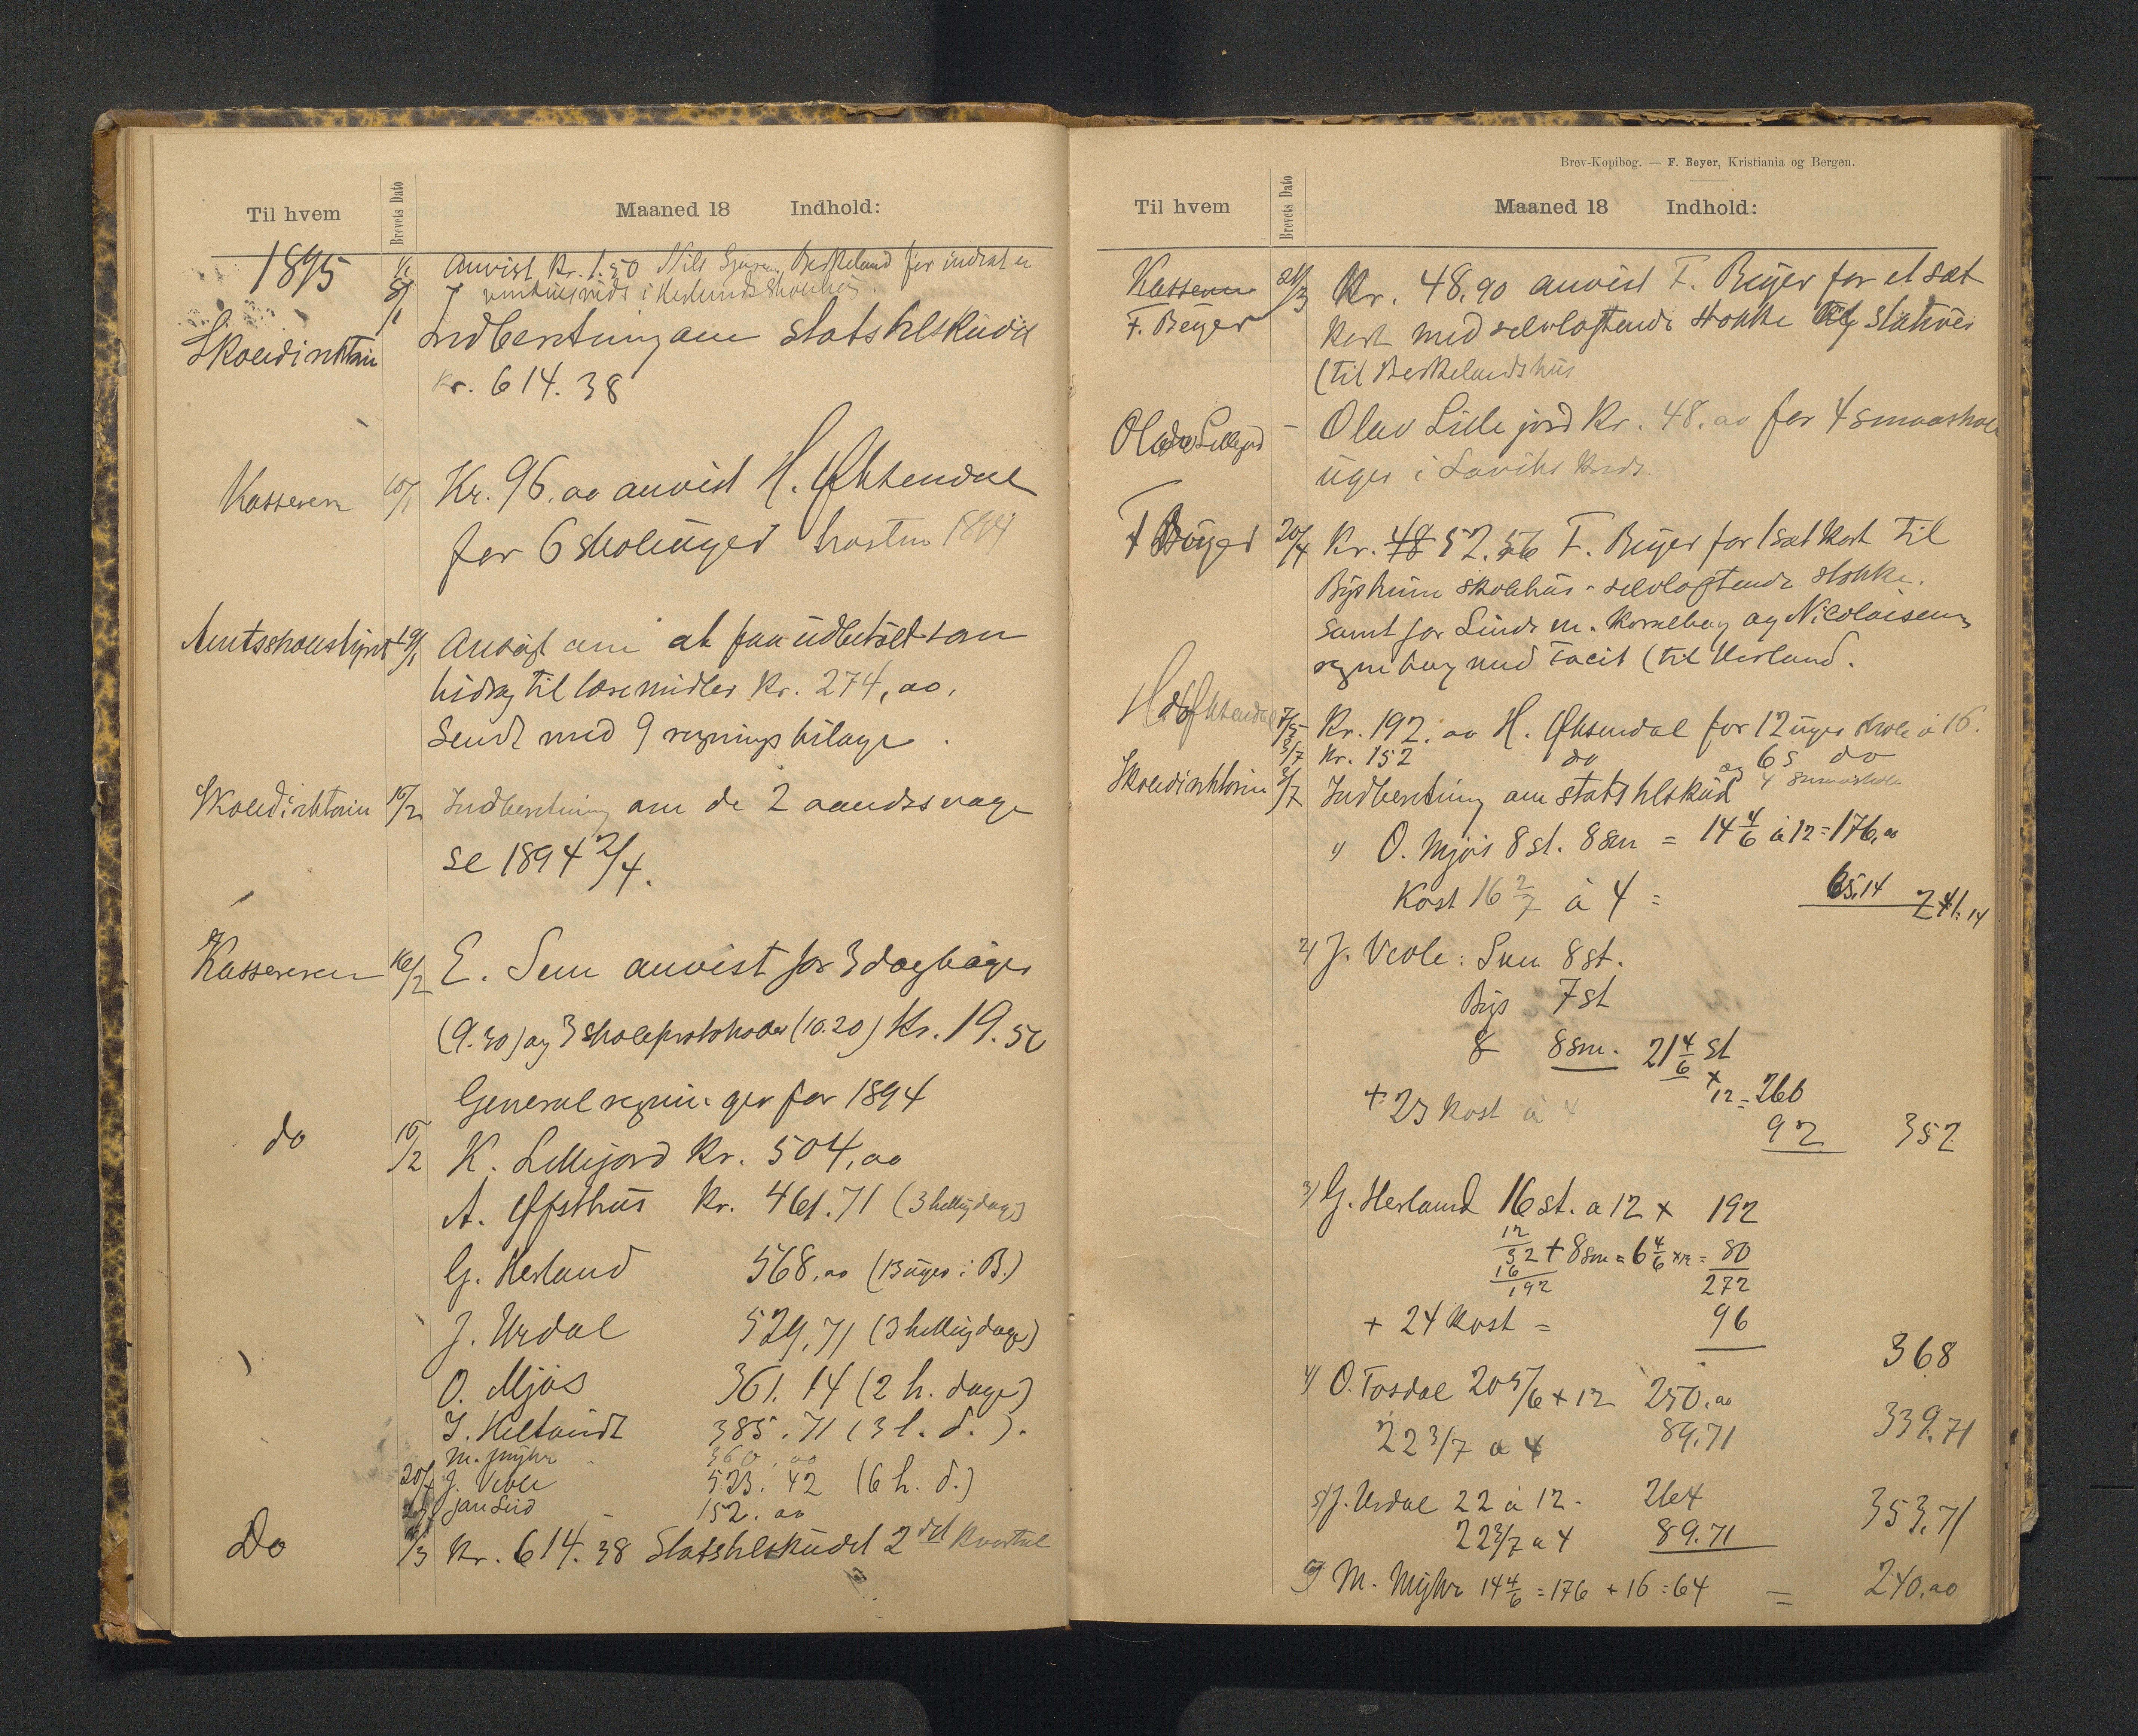 Til hvem
Brevets Dato
Maaned 18 Indhold:
1895
Anvist Kr. 1.50 Nils Berkeland for indsat
8/1
Skoledirektøren
Indberetning om statstilskudet
Kr. 614.38
Kassereren 10/1 Kr. 96.00 anvist H. Øksendal
for 6 skoleuger høsten 1894
Amtsskolestyret 19/1 Ansøgt om at faa udbetalt som
bidrag til læremidler Kr. 274,00.
Sendt med 9 regningsbilage.
Skoledirektøren 15/2 Indberetning om de 2 aandssvage
se 1894 2/4.
Kassereren 16/2 E. Sem anvist for 3 dagbøger
(9.30) og 3 skoleprotokoller (10.20) Kr. 19.50
Generalregninger for 1894
do 15/2 K. Lillejord Kr. 504,00
A. Øfsthus Kr. 461.71 (3 helligdage)
G. Herland 568,00 (13 uger i B.)
J. Urdal 529.71 (3 helligdage)
O. Mjøs 361.14 (2 h. dage)
385.71 (3 h. d.).
M. Myhr 360.00
20/ J. Veole 523.42 (6 h. d.)
152.00
Do /3 Kr. 614.38 Statstilskudet 2det kvartal
Brev-Kopibog. — F. Beyer, Kristiania og Bergen.
Til hvem
Brevets Dato
Maaned 18 Indhold:
Kasseren
F. Beyer
Kr. 48.90 anvist F. Beyer for et sæt
Kart med selvløftende stokke og stativer
(til Berkelands hus
Olav Lillejord - Olav Lillejord Kr. 48.00 for 4 smaaskole
uger i Laviks Krds.
F Beyer 20/4 Kr. 48 52.56 F. Beyer for 1 sæt Kart til
skolehus - selvløftende stokke.
Samt for Linds m. og Nicolaisens
regnebog med Facit (til Herland.
H Øksendal 7/5 Kr. 192.00 H. Øksendal for 12 uger skole à 16.
3/7 Kr. 152 do 6 s do
og 4 smaaskole
Skoledirektøren 3/7 Indberetning om statstilskud
1) O. Mjøs 8 st. 8 sm = 14 4/6 à 12 = 176,00
Kost 16 2/7 à 4 = 65.14 241.14
2) J. Veole: Sem 8 st.
7 st
8 8 sm. 21 4/6 st
x 12 = 260
+ 23 Kost à 4
92 352
3) G. Herland 16 st. a 12 x 192
12
32 + 8 sm = 6 4/6 x 12 = 80
16
192 272
+ 24 Kost = 96
368
4) O. Tosdal 20 5/6 + 12 250.00
22 3/7 a 4 89.71 339.71
5) J. Urdal 22 à 12 - 264
22 3/7 a 4 89.71 353.71
M. Myhr 14 4/6 = 176 + 16 = 64 = 240.00